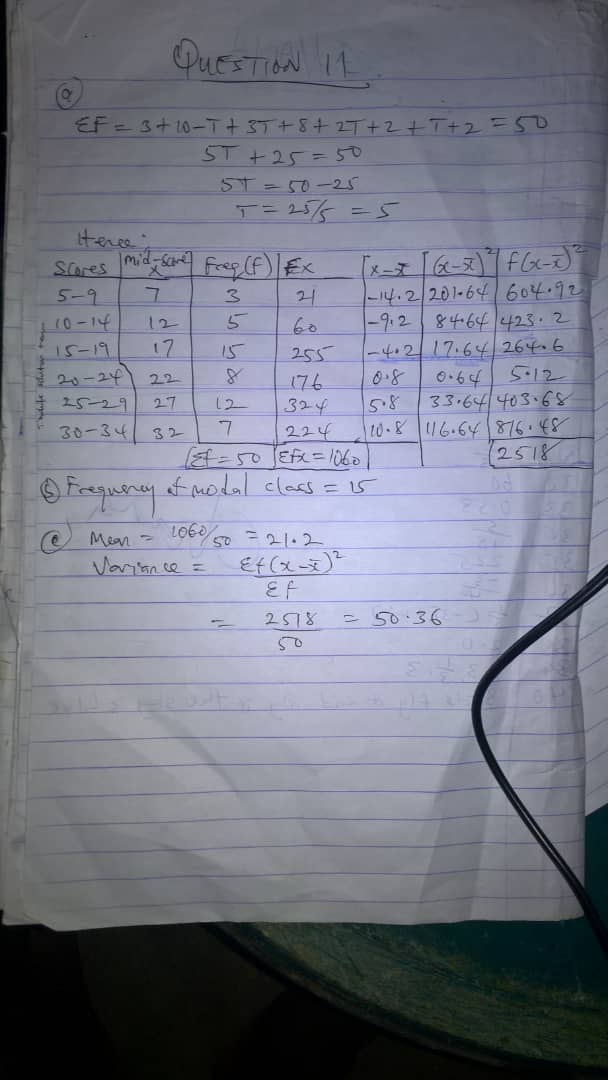 QUESTION 11
(a)
Ef = 3+10-T+3T+8+2T+2+T+2 = 50
5T + 25 = 50
5T = 50-25
T = 25/5 = 5
Hence;
Scores | mid-score x | Freq (f) | Ex | x-x̄ | (x-x̄)² | f(x-x̄)²
5-9 | 7 | 3 | 21 | -14.2 | 201.64 | 604.92
10-14 | 12 | 5 | 60 | -9.2 | 84.64 | 423.2
15-19 | 17 | 15 | 255 | -4.2 | 17.64 | 264.6
20-24 | 22 | 8 | 176 | 0.8 | 0.64 | 5.12
25-29 | 27 | 12 | 324 | 5.8 | 33.64 | 403.68
30-34 | 32 | 7 | 224 | 10.8 | 116.64 | 816.48
Ef=50 | Efx=1060 | 2518
(b) Frequency of modal class = 15
(c) Mean = 1060/50 = 21.2
Variance = Ef(x-x̄)²
Ef
= 2518 = 50.36
50